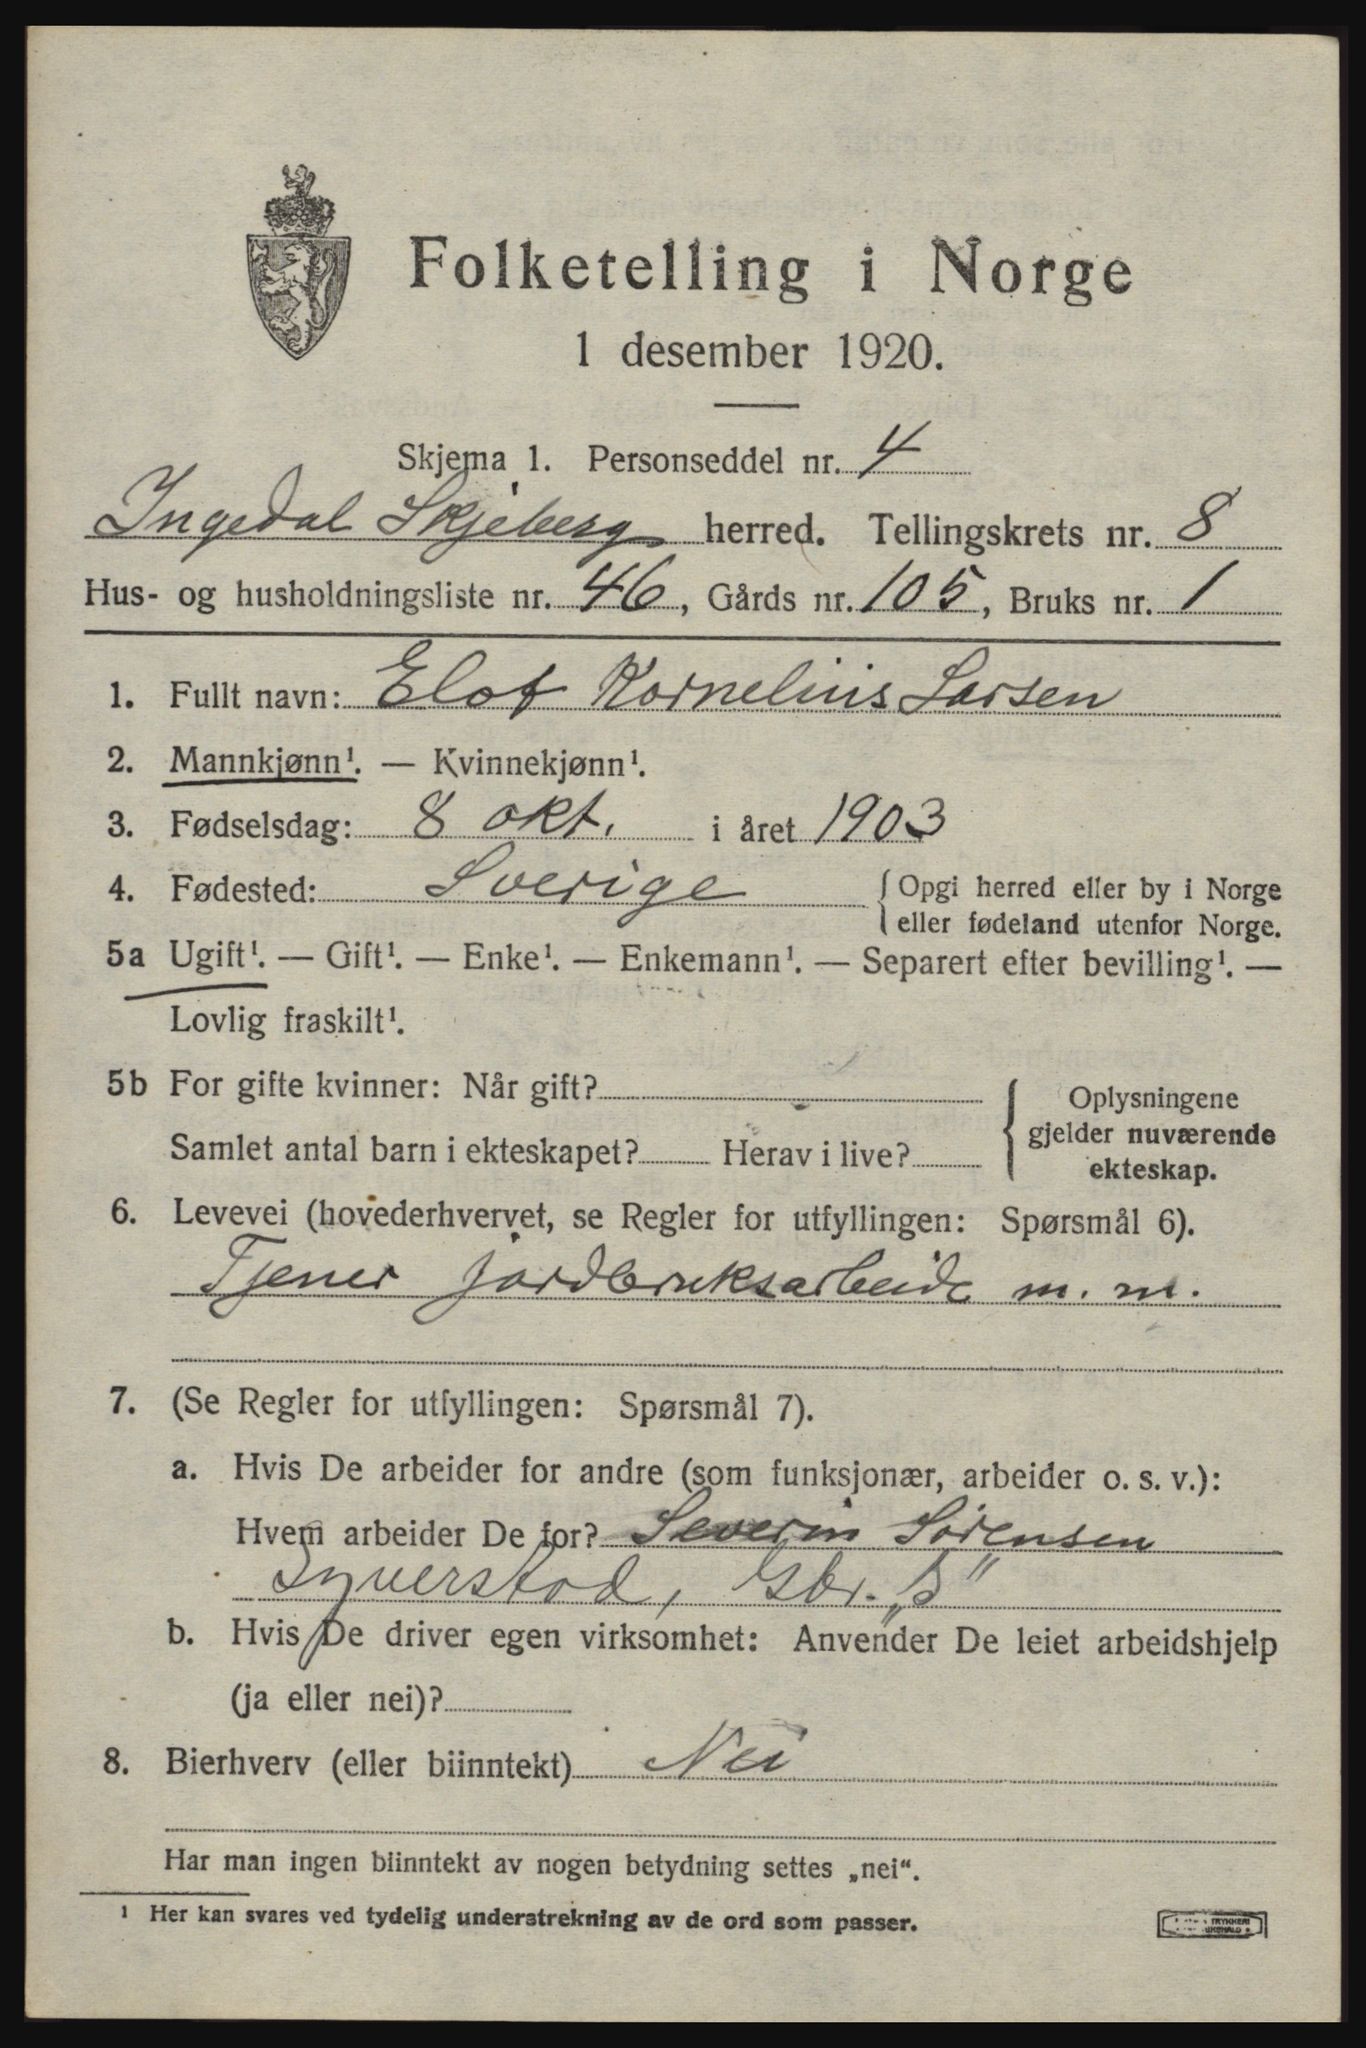 Folketelling i Norge
1 desember 1920.
Skjema 1. Personseddel nr. 4
Ingedal Skjeberg herred. Tellingskrets nr. 8
Hus- og husholdningsliste nr. 46, Gårds nr. 105, Bruks nr. 1
1. Fullt navn: Elof Kornelius Larsen
2. Mannkjønn¹. — Kvinnekjønn¹.
3. Fødselsdag: 8 okt. i året 1903
4. Fødested: Sverige { Opgi herred eller by i Norge
eller fødeland utenfor Norge.
5a Ugift¹. — Gift¹. — Enke¹. — Enkemann¹. — Separert efter bevilling¹. —
Lovlig fraskilt¹.
5b For gifte kvinner: Når gift?
Samlet antal barn i ekteskapet? Herav i live?
{ Oplysningene
gjelder nuværende
ekteskap.
6. Levevei (hovederhvervet, se Regler for utfyllingen: Spørsmål 6).
Tjener jordbruksarbeide m. m.
7. (Se Regler for utfyllingen: Spørsmål 7).
a. Hvis De arbeider for andre (som funksjonær, arbeider o. s. v.):
Hvem arbeider De for? Severin Sörensen
Syverstad, Gbr.
b. Hvis De driver egen virksomhet: Anvender De leiet arbeidshjelp
(ja eller nei)?
8. Bierhverv (eller biinntekt) Nei
Har man ingen biinntekt av nogen betydning settes „nei“.
¹ Her kan svares ved tydelig understrekning av de ord som passer.